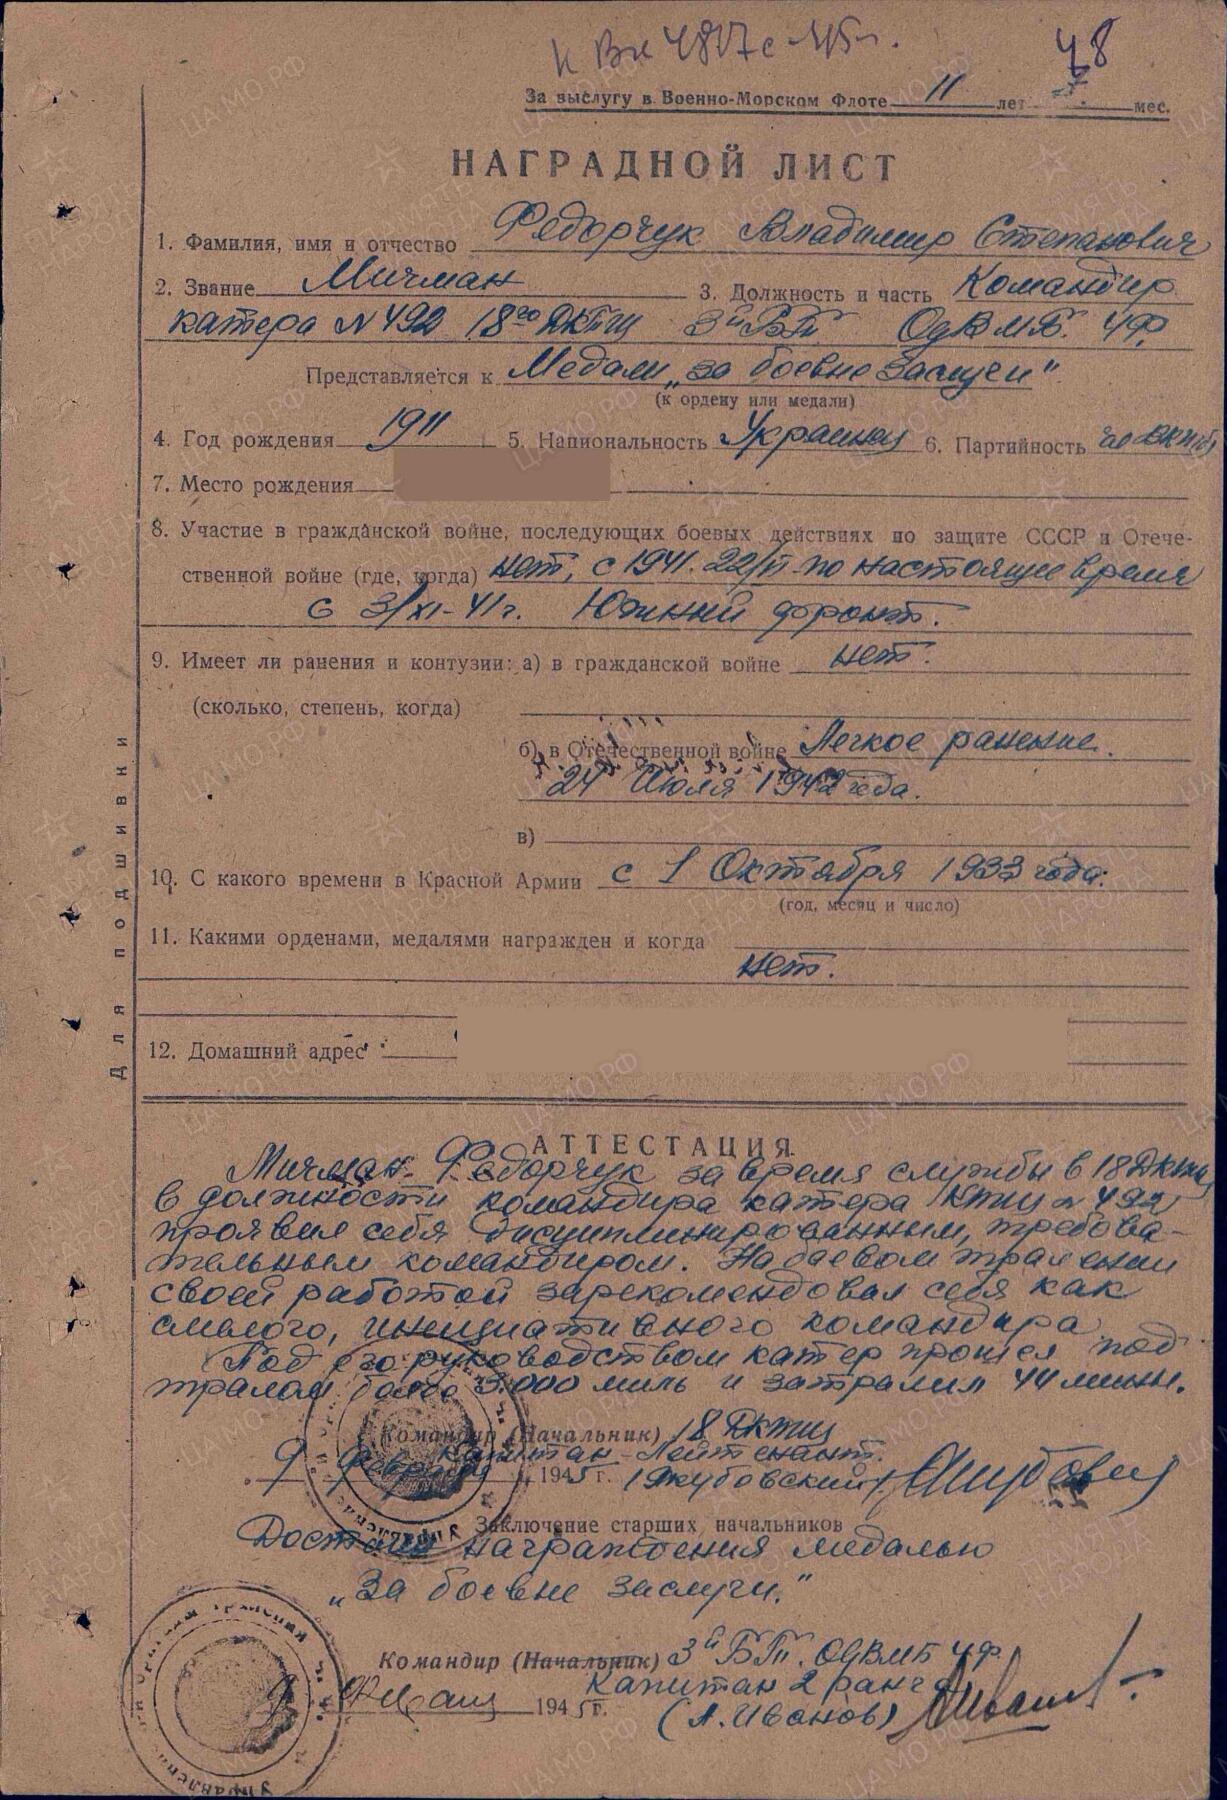 к Вх 4817с-45г.
48
За выслугу в Военно-Морском Флоте 11 лет 7 мес.
НАГРАДНОЙ ЛИСТ
1. Фамилия, имя и отчество Федорчук Владимир Степанович
2. Звание Мичман 3. Должность и часть Командир
катера N 492 18го ДКТЩ 3й БТ ОдВМБ. ЧФ.
Представляется к Медали „за боевые заслуги"
(к ордену или медали)
4. Год рождения 1911 5. Национальность Украинец 6. Партийность ВКП(б)
7. Место рождения
8. Участие в гражданской войне, последующих боевых действиях по защите СССР и Отече-
ственной войне (где, когда) нет, с 1941. 22/VI- по настоящее время
с 3/XI-41г. Южный фронт.
9. Имеет ли ранения и контузии: а) в гражданской войне нет.
(сколько, степень, когда)
б) в Отечественной войне Легкое ранение.
24 Июля 1942 года.
в)
10. С какого времени в Красной Армии с 1 Октября 1933 года.
(год, месяц и число)
11. Какими орденами, медалями награжден и когда
нет.
12. Домашний адрес
Для подшивки
АТТЕСТАЦИЯ
Мичман Федорчук за время службы в 18 ДКТЩ
в должности командира катера КТЩ N 492
проявил себя дисциплинированным, требова-
тельным командиром. На боевом тралении
своей работой зарекомендовал себя как
смелого, инициативного командира.
Под его руководством катер прошел под
тралом более 3.000 миль и затралил 44 мины.
Командир (Начальник) 18 ДКТЩ
Капитан-Лейтенант
9 февраля 1945 г. (Якубовский)
Заключение старших начальников
Достоин награждения медалью
„За боевые заслуги."
Командир (Начальник) 3й БТ. ОдВМБ ЧФ
Капитан 2 ранга
9 Февраля 1945 г. (А. Иванов)